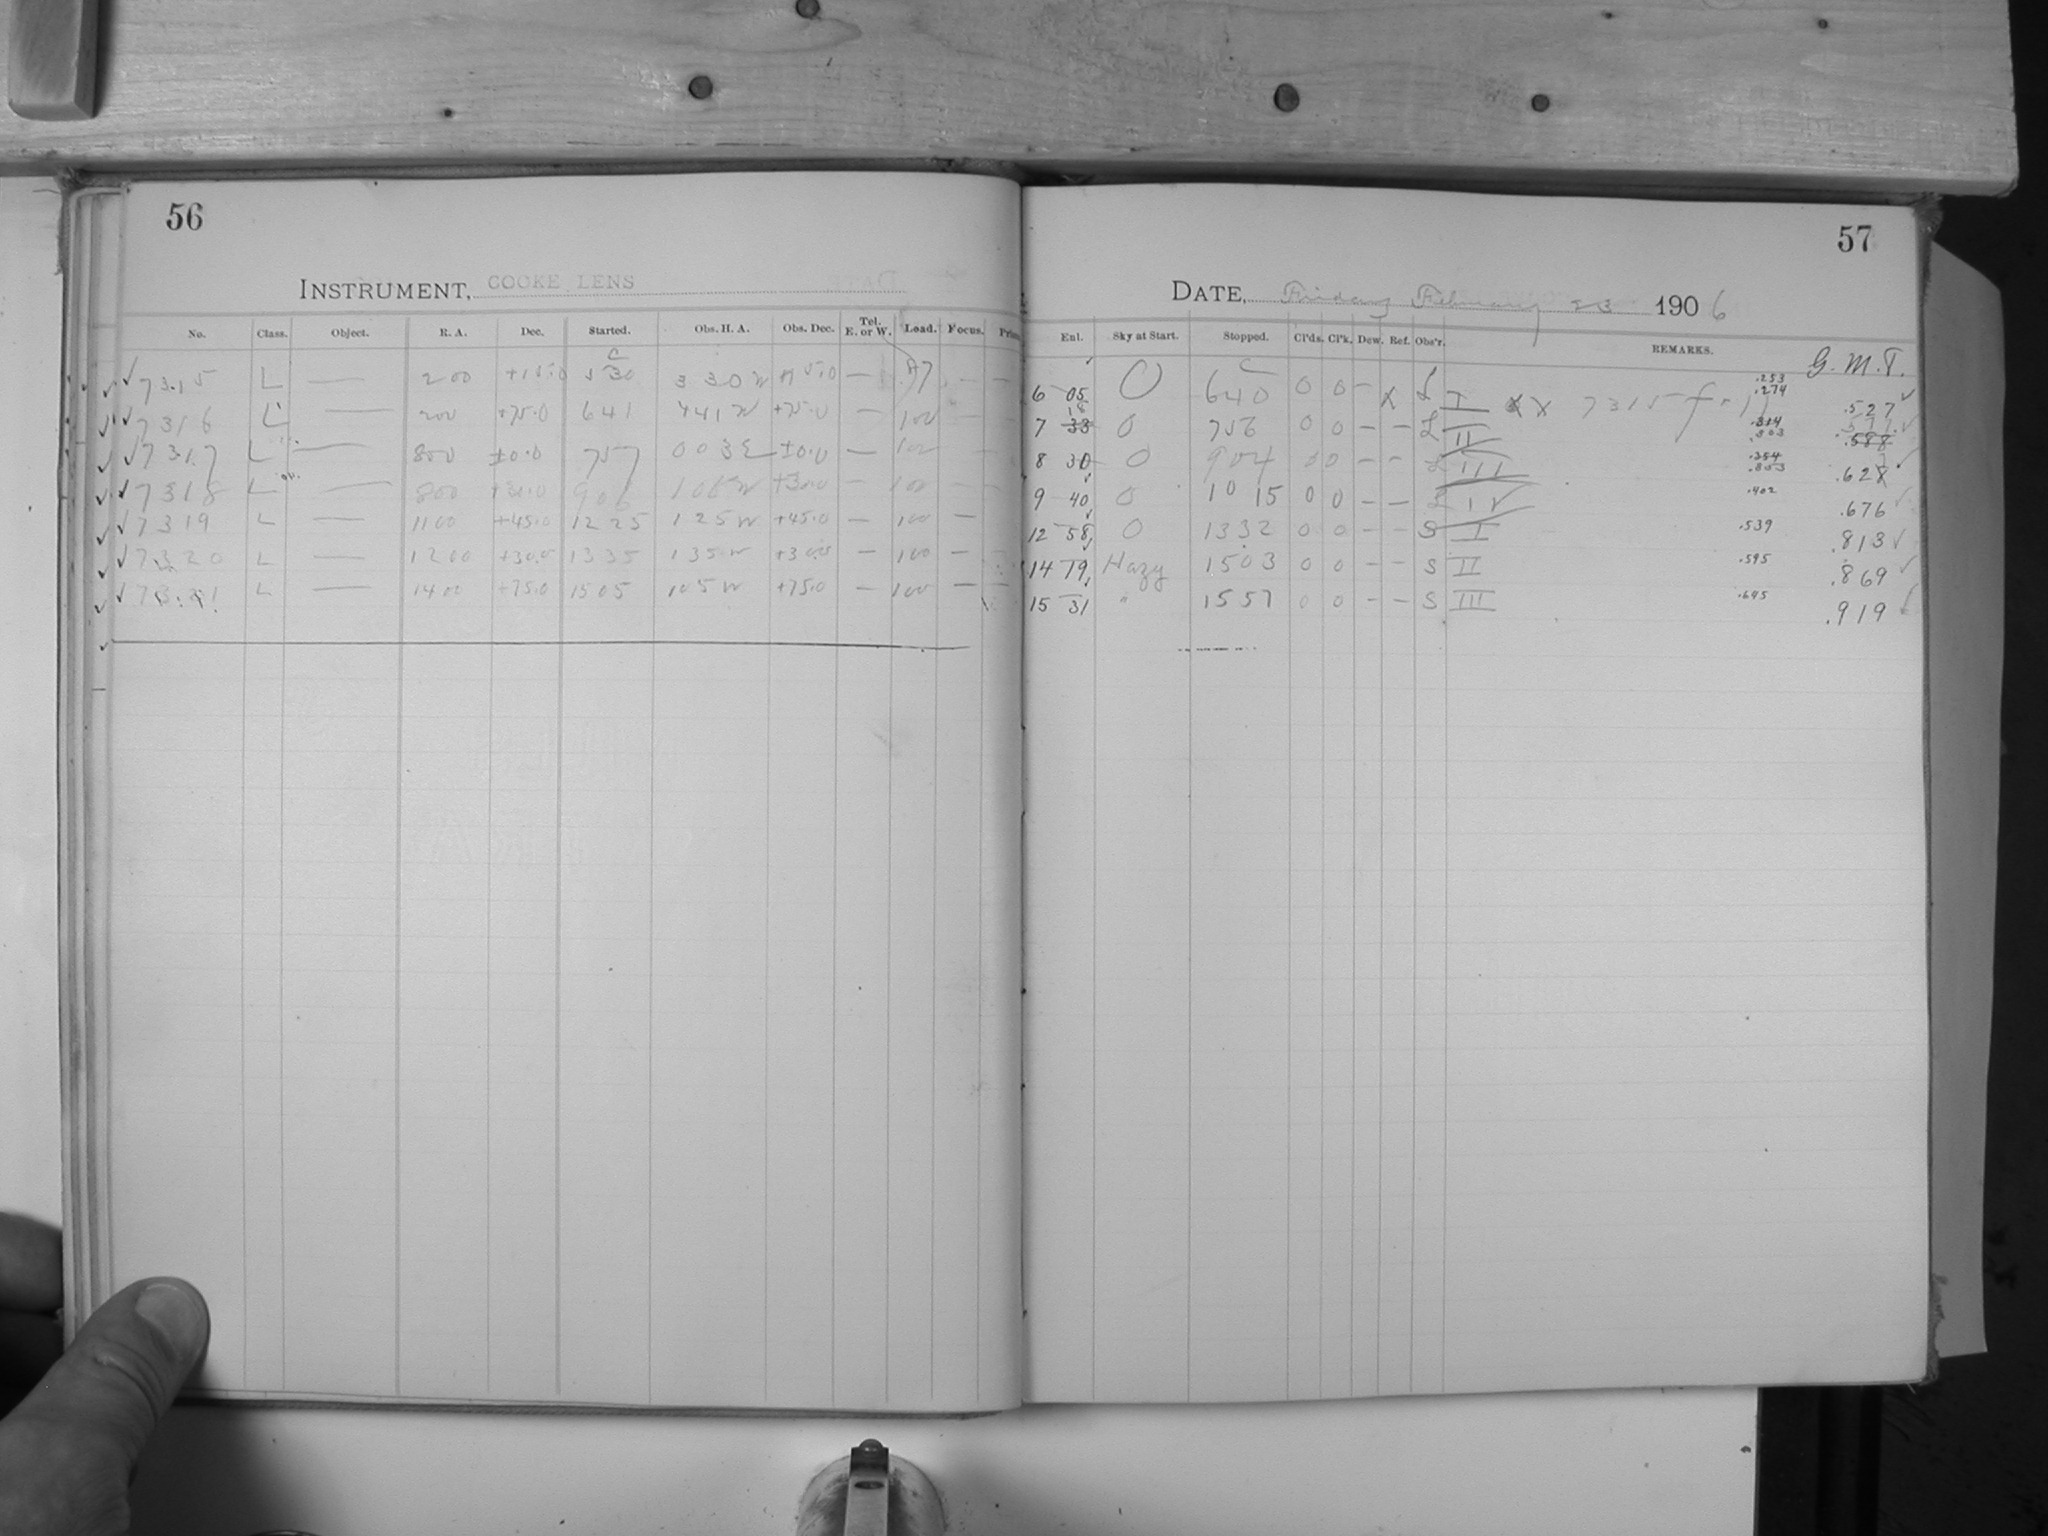 56
INSTRUMENT, COOKE LENS
No. Class. Object. R. A. Dec. Started. Obs. H. A. Obs. Dec. Tel. E. or W. Load. Focus.
✓ 7315 L — 200 +15.0 530 3 30 W +15.0 — —
✓ 7316 L — 200 +75.0 641 441 W +75.0 — 100
✓ 7317 L — 800 ±0.0 757 003 E ±0.0 — 100 —
✓ 7318 L — 800 +30.0 906 106 W +30.0 — 100 —
✓ 7319 L — 1100 +45.0 1225 125 W +45.0 — 100 —
✓ 7320 L — 1200 +30.0 1335 135 W +30.0 — 100 —
✓ 7321 L — 1400 +75.0 1505 105 W +75.0 — 100 —
57
DATE, Friday February 23 1906
Enl. Sky at Start. Stopped. Cl'ds. Cl'k. Dew. Ref. Obs'r. REMARKS. G. M. T.
6 05 0 640 0 0 — X L I XX 7315 .253 .274 .527 ✓
7 33 18 0 756 0 0 — — L II .314 .303 .588
8 30 0 904 0 0 — — L III .354 .628 ✓
9 40 0 10 15 0 0 — — L IV .402 .676 ✓
12 58 0 1332 0 0 — — S I .539 .813 ✓
14 19 Hazy 1503 0 0 — — S II .595 .869 ✓
15 31 " 1557 0 0 — — S III .645 .919 ✓